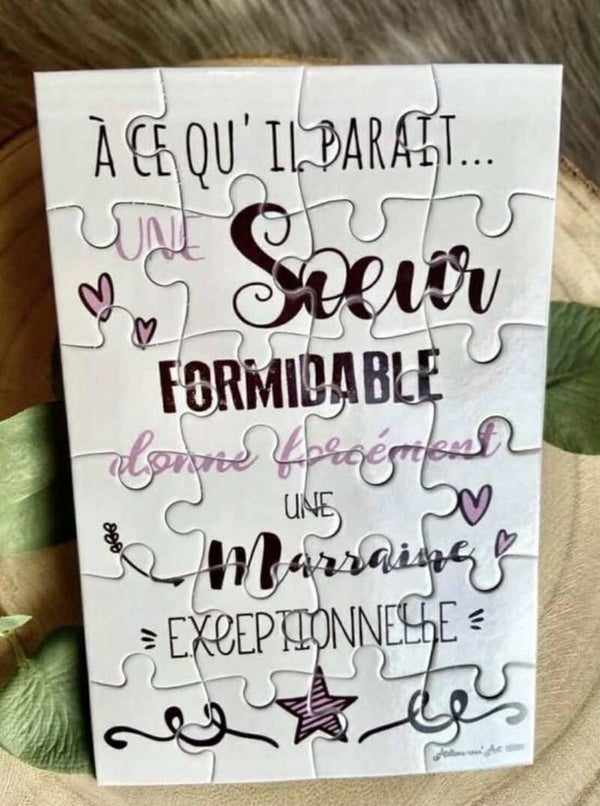 À CE QU'IL PARAIT...
UNE
Sœur
FORMIDABLE
donne forcément
UNE
Marraine
EXCEPTIONNELLE